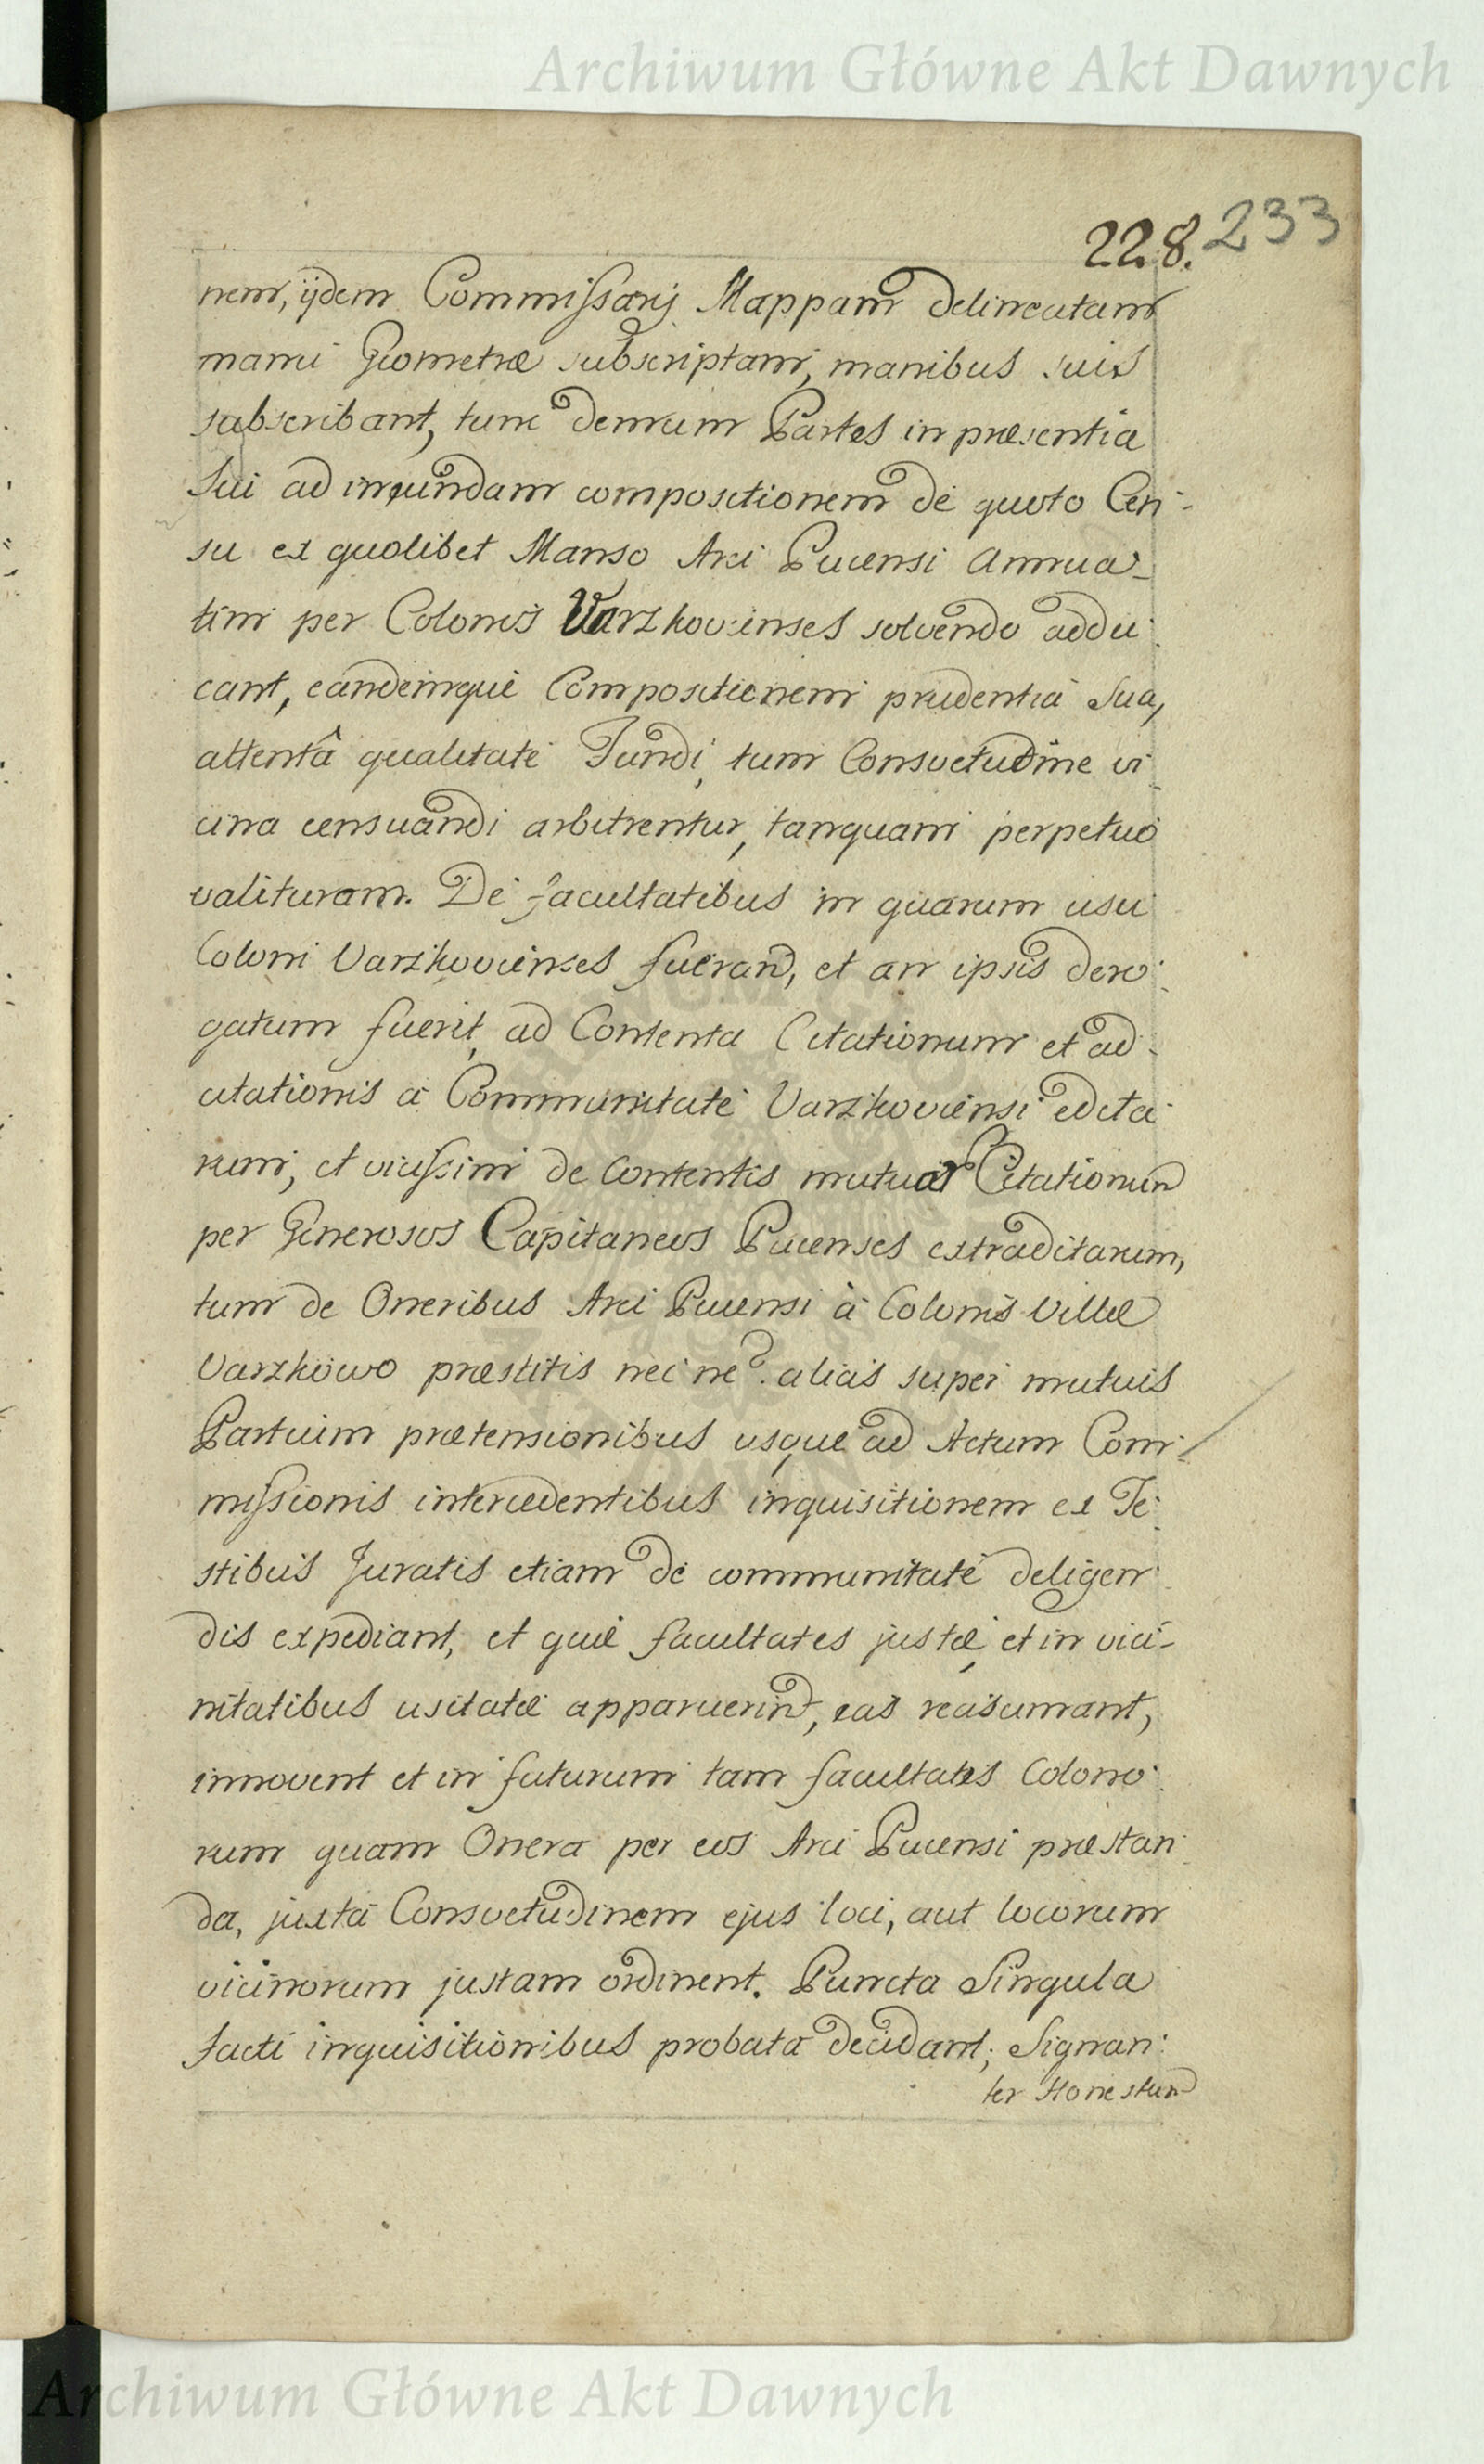 Archiwum Główne Akt Dawnych
228. 233
nem, ijdem Commissarij Mappam delineatam
manu Geometræ subscriptam, manibus suis
subscribant, tum demum Partes in præsentia
Sui ad ineundam compositionem de quoto Cen-
su ex quolibet Manso Arci Pucensi annua-
tim per Colonos Varzkovienses solvendo addu-
cant, eandemque Compositionem prudentiâ Sua,
attentâ qualitate Fundi, tum Consvetudine vi-
cina censuandi arbitrentur, tanquam perpetuo
valituram. De facultatibus in quarum usu
Coloni Varzkovienses fuerant, et an ipsis dero-
gatum fuerit, ad Contenta Citationum et ad-
citationis à Communitate Varzkoviensi edita-
rum, et vicissim de Contentis mutuar Citationum
per Generosos Capitaneos Pucenses extraditarum,
tum de Oneribus Arci Pucensi à Colonis Villæ
Varzkowo præstitis nec ne? aliis super mutuis
Partium prætensionibus usque ad Actum Com-
missionis intercedentibus inquisitionem ex Te-
stibus Juratis etiam de communitate deligen-
dis expediant, et quæ facultates justæ, et in vici-
nitatibus usitatæ apparuerint, eas reasumant,
innovent et in futurum tam facultates Colono-
rum quam Onera per eos Arci Pucensi præstan-
da, juxta Consvetudinem ejus loci, aut locorum
vicinorum justam ordinent. Puncta Singula
facti inquisitionibus probata decidant; Signan-
ter Honestum
Archiwum Główne Akt Dawnych